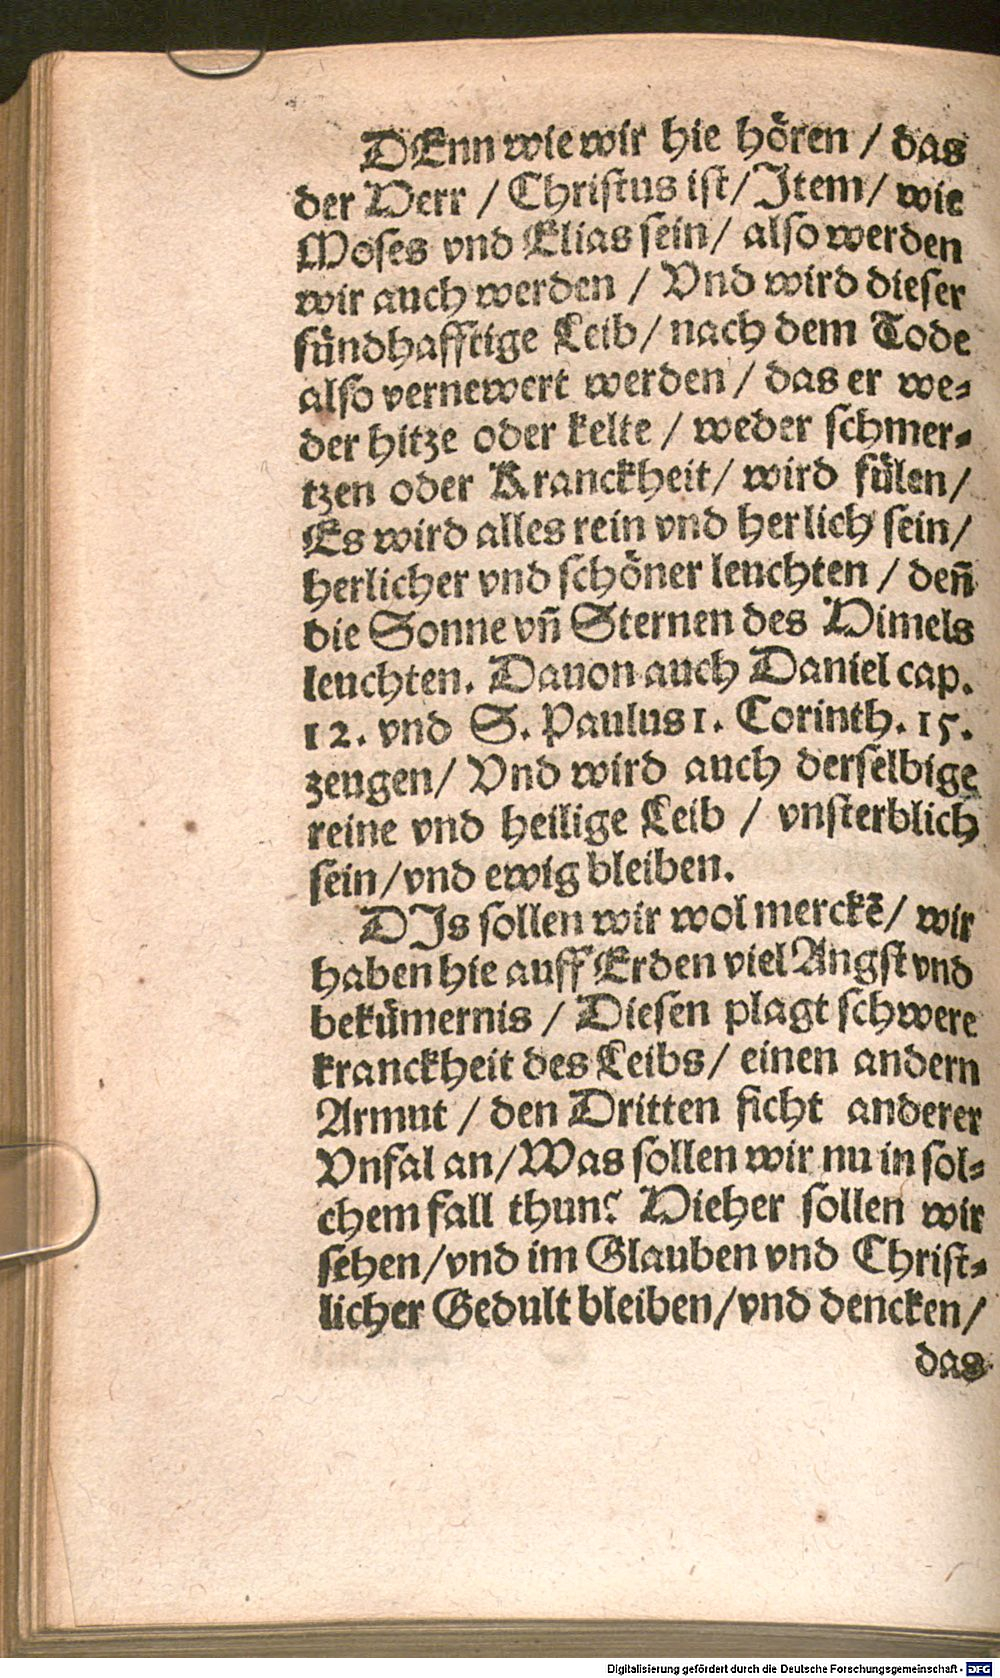 DEnn wie wir hie hören / das
der Herr / Christus ist / Item / wie
Moses vnd Elias sein / also werden
wir auch werden / Vnd wird dieser
sündhafftige Leib / nach dem Tode
also vernewert werden / das er we-
der hitze oder kelte / weder schmer-
tzen oder Kranckheit / wird fülen /
Es wird alles rein vnd herlich sein /
herlicher vnd schöner leuchten / deñ
die Sonne vñ Sternen des Himels
leuchten. Dauon auch Daniel cap.
12. vnd S. Paulus 1. Corinth. 15.
zeugen / Vnd wird auch derselbige
reine vnd heilige Leib / vnsterblich
sein / vnd ewig bleiben.
DIs sollen wir wol merckē / wir
haben hie auff Erden viel Angst vnd
bekümernis / Diesen plagt schwere
kranckheit des Leibs / einen andern
Armut / den Dritten ficht anderer
Vnfal an / Was sollen wir nu in sol-
chem fall thun? Hieher sollen wir
sehen / vnd im Glauben vnd Christ-
licher Gedult bleiben / vnd dencken /
das
Digitalisierung gefördert durch die Deutsche Forschungsgemeinschaft - DFG